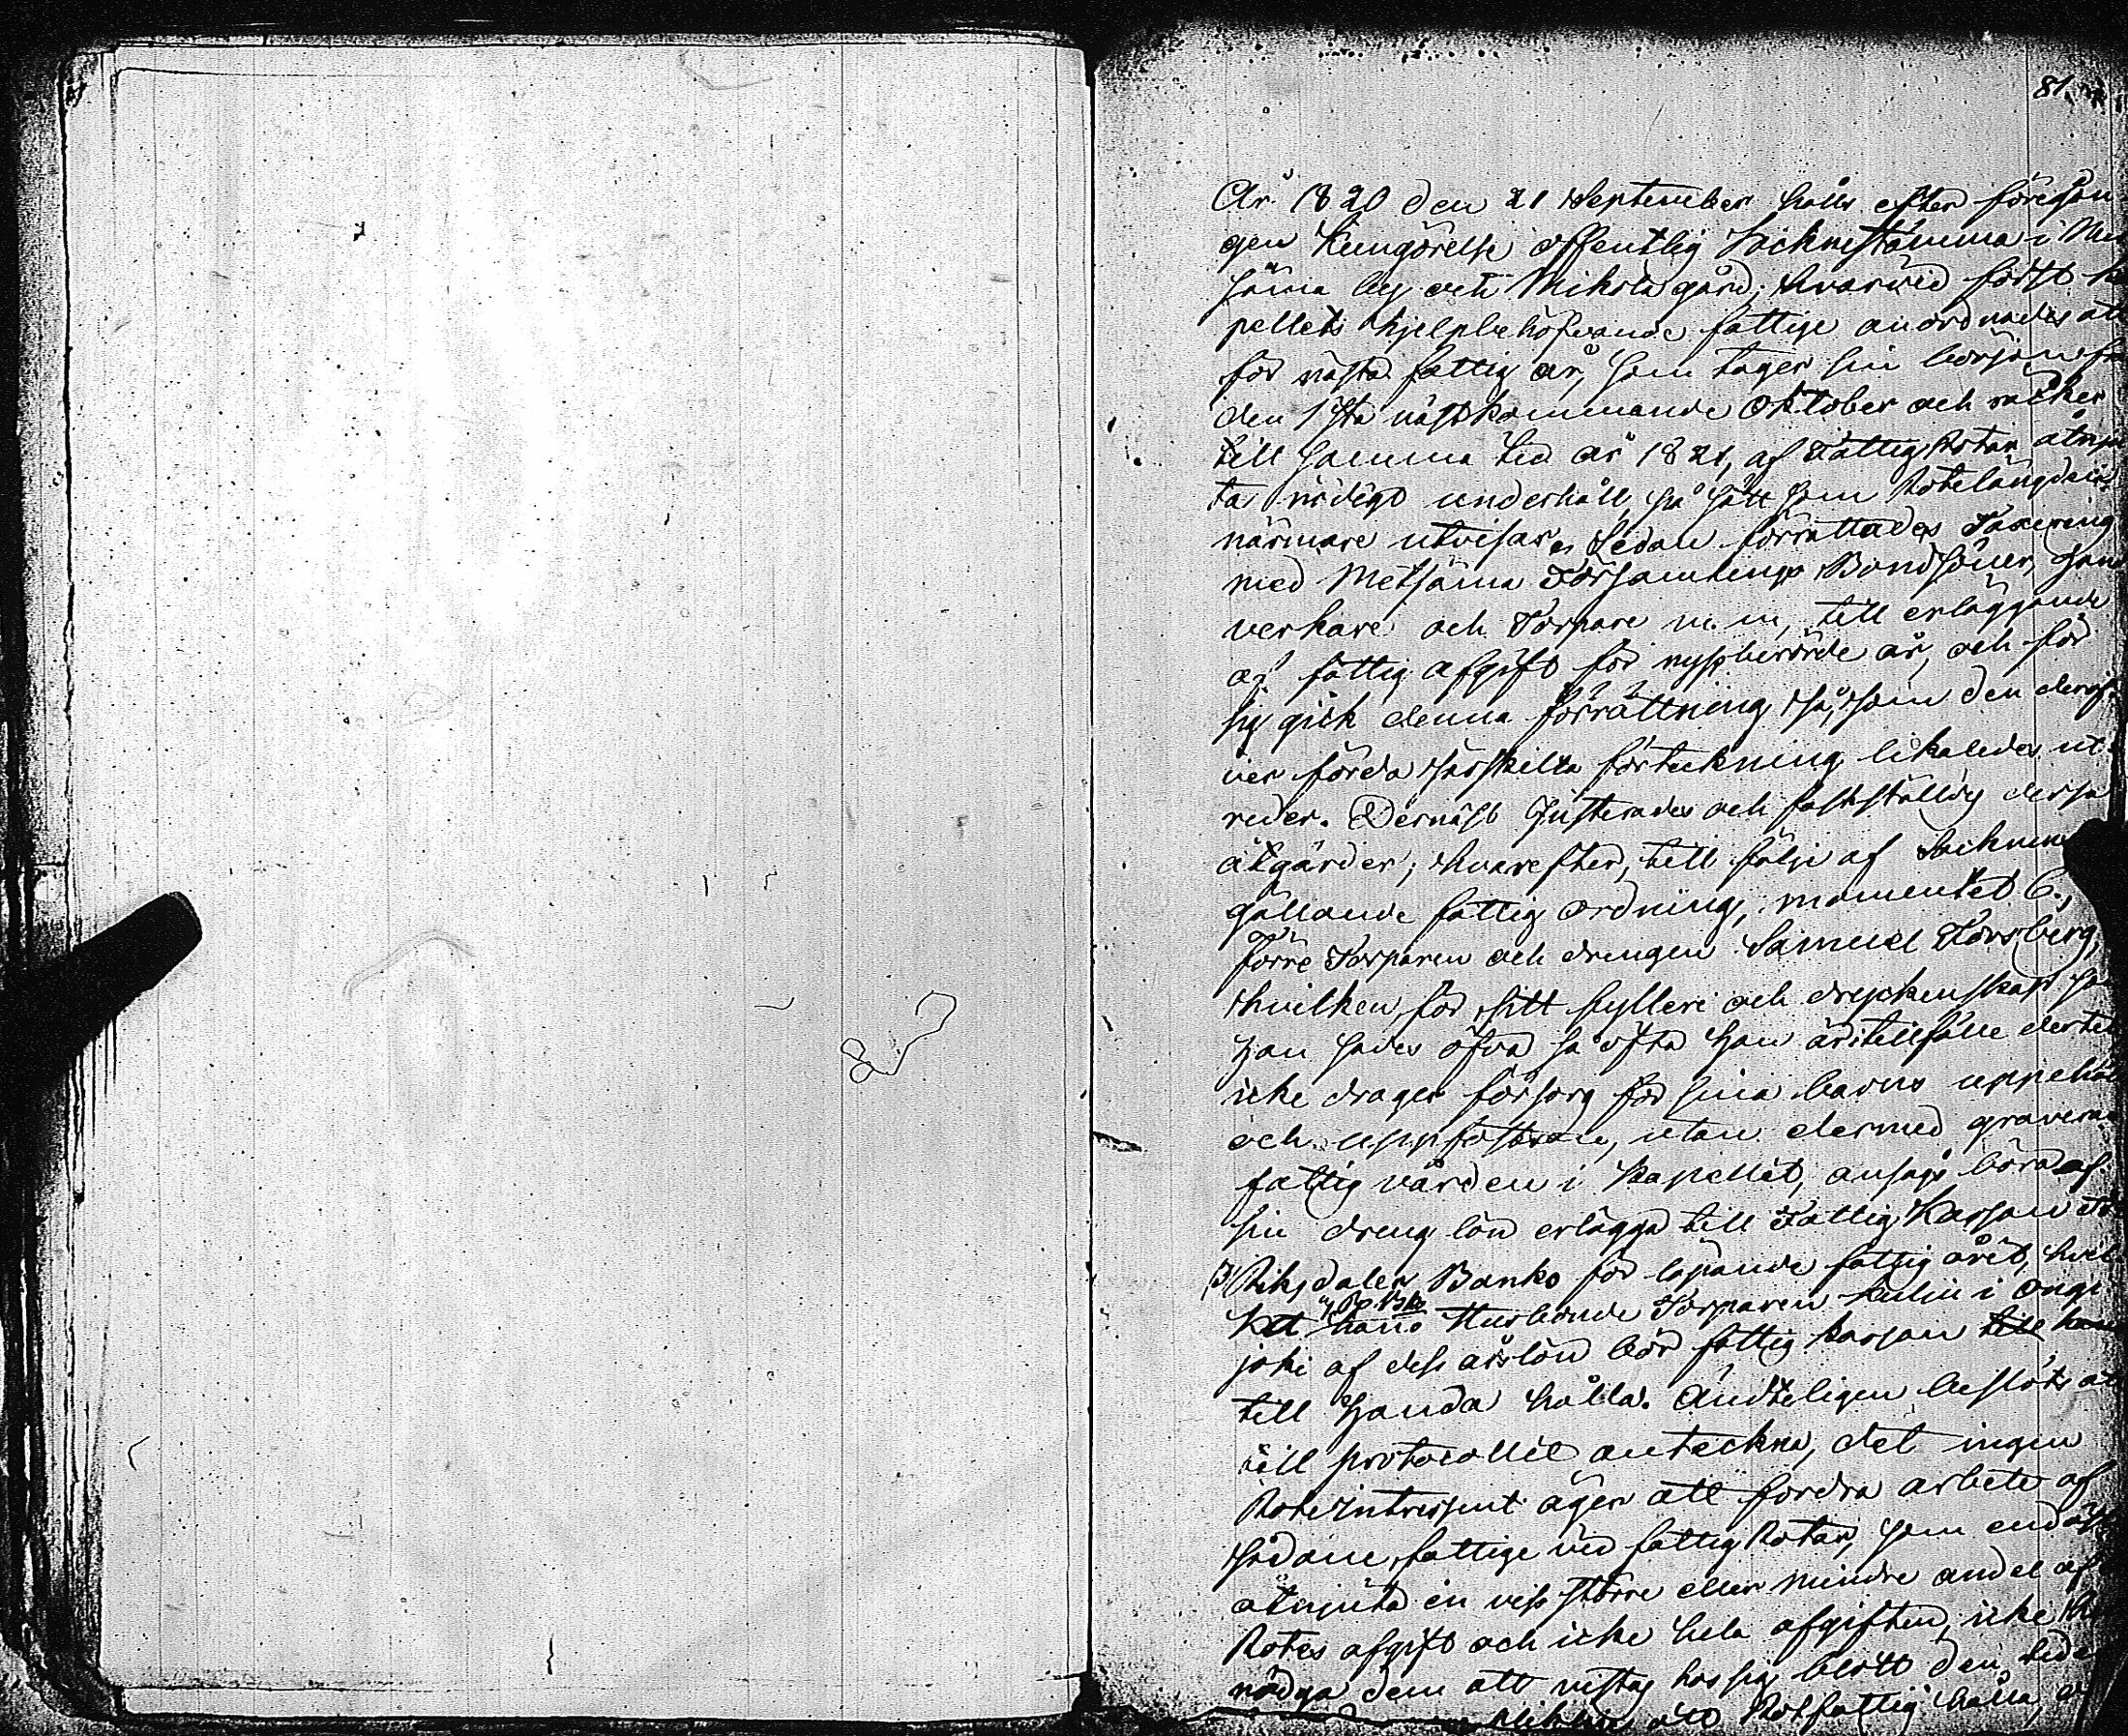 81.
År 1820 den 21 September hölls efter föregån
gen Kungörelse offentlig Socknestämma i
by och Mikola gård; hvarvid först
pellets hjelpbehöfvande fattige anordnades att
för nästa fattig år, som tager sin början
den 1sta nästkommande Oktober och räcker
till samma tid år 1821, af Fattig Rotar åtnju
ta nödigt underhåll, på sätt som Rotelängden
närmare utvisar. Sedan förrättades Taxering
med Metsäma Församlings Bondsöner, Hand
verkare och Torpare m. m, till erläggande
af fattig afgift för nyssberörde år, och för
sig gick denna förrättning så, som den deröf
ver förda särskilta förteckning likaledes ut
reder. Dernäst Justerades och fastställdes dessa
åtgärder; hvarefter, till följe af Socknens
gällande fattig ordning, momentet 6.,
Förre Torparen och drengen Samuel Forsberg,
hvilken, för sitt fylleri och dryckenskap
han sades öfva så ofta han är i tillfälle dertill
icke drager försorg för sina barns uppehäl
och uppfostran, utan dermed graverar
fattigvården i Kapellet, ansågs böra af
sin dreng lön erlägga till Fattig Kassan
3 Riksdaler Banko för löpande fattig året, hvil
ket hans Husbonde Torparen i
joki af dess årslön bör fattig kassan till
till handa hålla. Ändteligen beslöts att
till protocollet anteckna, det ingen
Rote Intressent äger att fordra arbete af
sådane fattige vid fattig Rotar, som endast
åtnjuta en viss större eller mindre andel af
Rotes afgift och icke hela afgiften, icke
nödga dem att vistas hos sig blott den tid
att Rotfattig hålla,